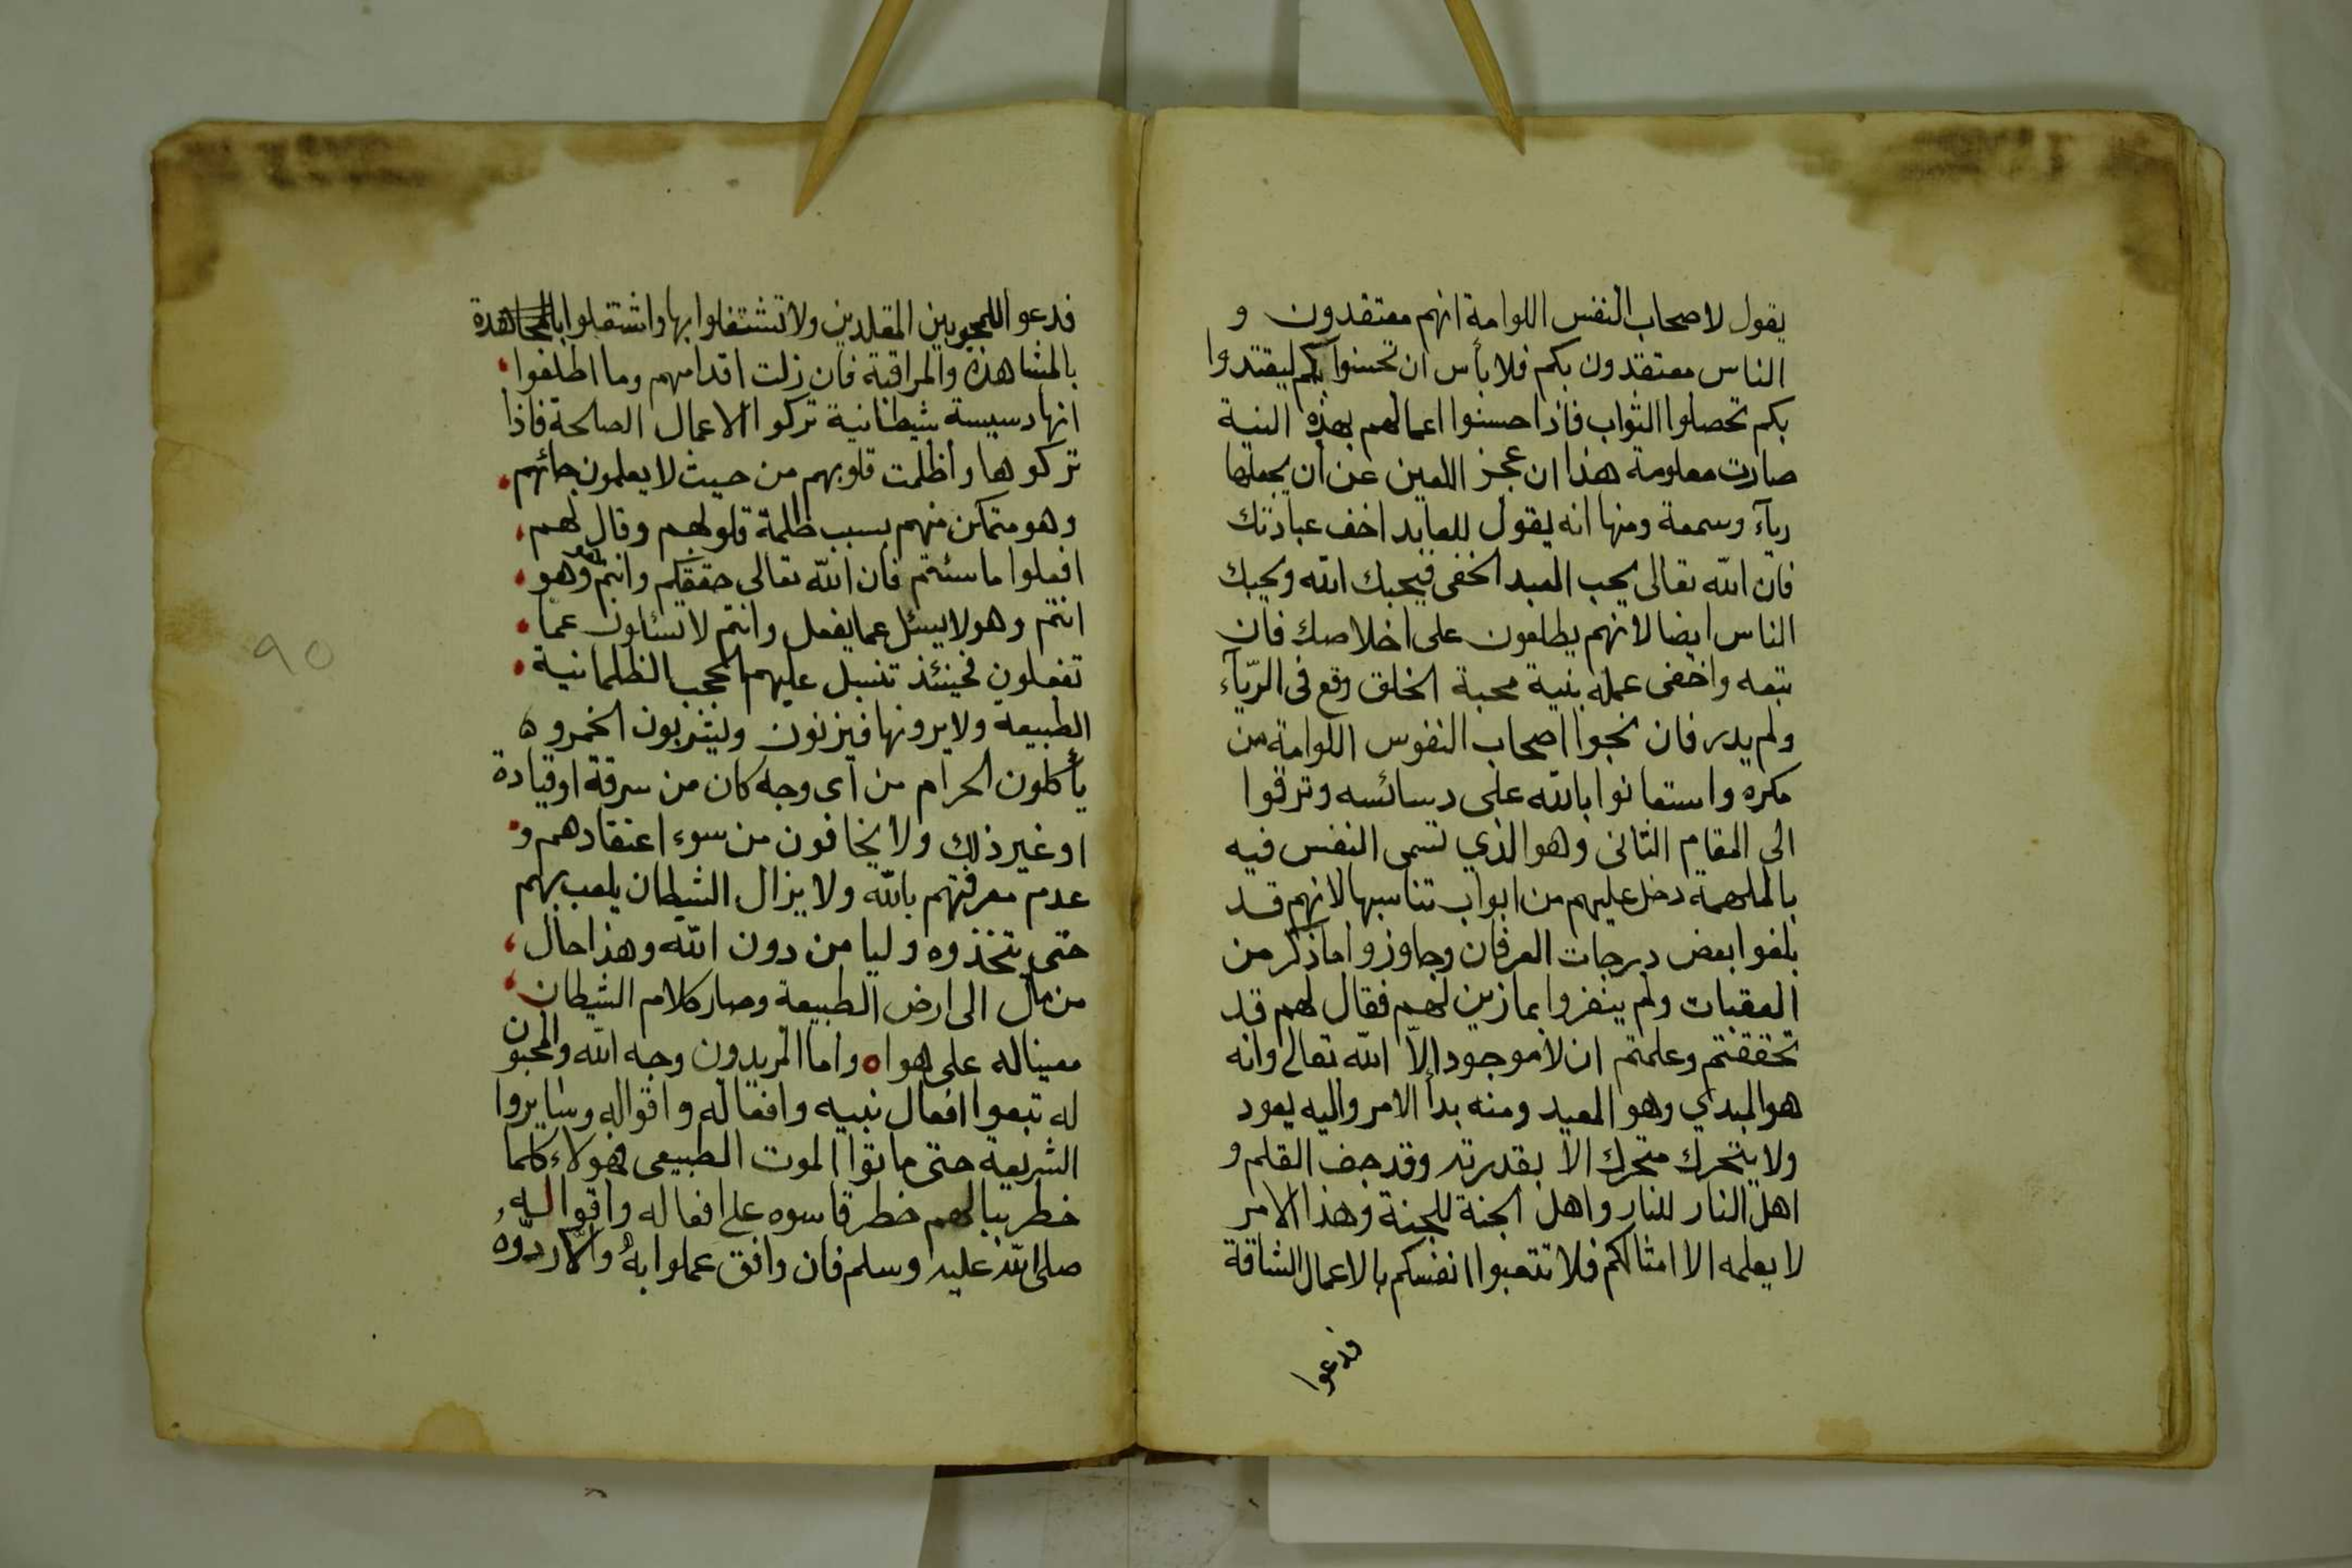 يقول لاصحاب النفس اللوامة انهم معتقدون و
الناس معتقدون بكم فلا بأس ان تحسنوا بكم ليقتدوا
بكم تحصلوا الثواب فاذا حسنوا اعمالهم بهذه النية
صارت معلومة هذا ان عجز اللعين عن ان يجعلها
رياء وسمعة ومنها انه يقول للعابد اخف عبادتك
فان الله تعالى يحب العبد الخفى فيحبك الله ويحبك
الناس ايضا لانهم يطلعون على اخلاصك فان
تبعه واخفى عمله بنية محبة الخلق وقع فى الريّآء
ولم يدر فان نجوا اصحاب النفوس اللوامة من
مكره واستعانوا بالله على دسائسه وترقوا
الى المقام الثانى وهو الذي تسمى النفس فيه
بالملهمة دخل عليهم من ابواب تناسبها لانهم قد
بلغوا بعض درجات العرفان وجاوزوا ما ذكر من
العقبات ولم ينغروا بما زين لهم فقال لهم قد
تحققتم وعلمتم ان لا موجود الّا الله تعالى وانه
هو المبدي وهو المعيد ومنه بدأ الامر واليه يعود
ولا يتحرك متحرك الا بقدرته وقد جف القلم و
اهل النار للنار واهل الجنة للجنة وهذا الامر
لا يعلمه الا امثالكم فلا تتعبوا انفسكم بالاعمال الشاقة
فدعوا
فدعوا للمحجوبين المقلدين ولا تشتغلوا بها واشتغلوا بالمجاهدة
بالمشاهدة والمراقبة فان زلت اقدامهم وما اطلعوا
انها دسيسة شيطانية تركوا الاعمال الصالحة فاذا
تركوها واظلمت قلوبهم من حيث لا يعلمون جائهم
وهو متمكن منهم بسبب ظلمة قلوبهم وقال لهم
افعلوا ما شئتم فان الله تعالى حقيقكم وانتم هو وهو
انتم وهو لا يسئل عما يفعل وانتم لا تسئلون عما
تفعلون فحينئذ تنسبل عليهم الحجب الظلمانية
الطبيعة ولا يرونها فيزنون ويشربون الخمر و
يأكلون الحرام من اى وجه كان من سرقة او قيادة
او غير ذلك ولا يخافون من سوء اعتقادهم و
عدم معرفتهم بالله ولا يزال الشيطان يلعب بهم
حتى يتخذوه وليا من دون الله وهذا حال
من مال الى ارض الطبيعة وصار كلام الشيطان
معينا له على هواه واما المريدون وجه الله والمحبون
له تبعوا افعال نبيه وافعاله واقواله وسايروا
الشريعة حتى ماتوا الموت الطبيعى فهولاء كلما
خطر ببالهم خطر قاسوه على افعاله واقواله
صلى الله عليه وسلم فان وافق عملوا به والّا ردّوه
٩٥